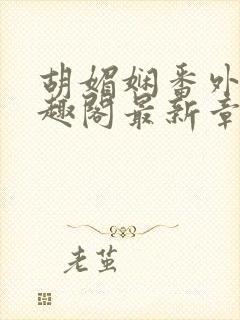 胡媚娴番外
趣阁最新章
老茧